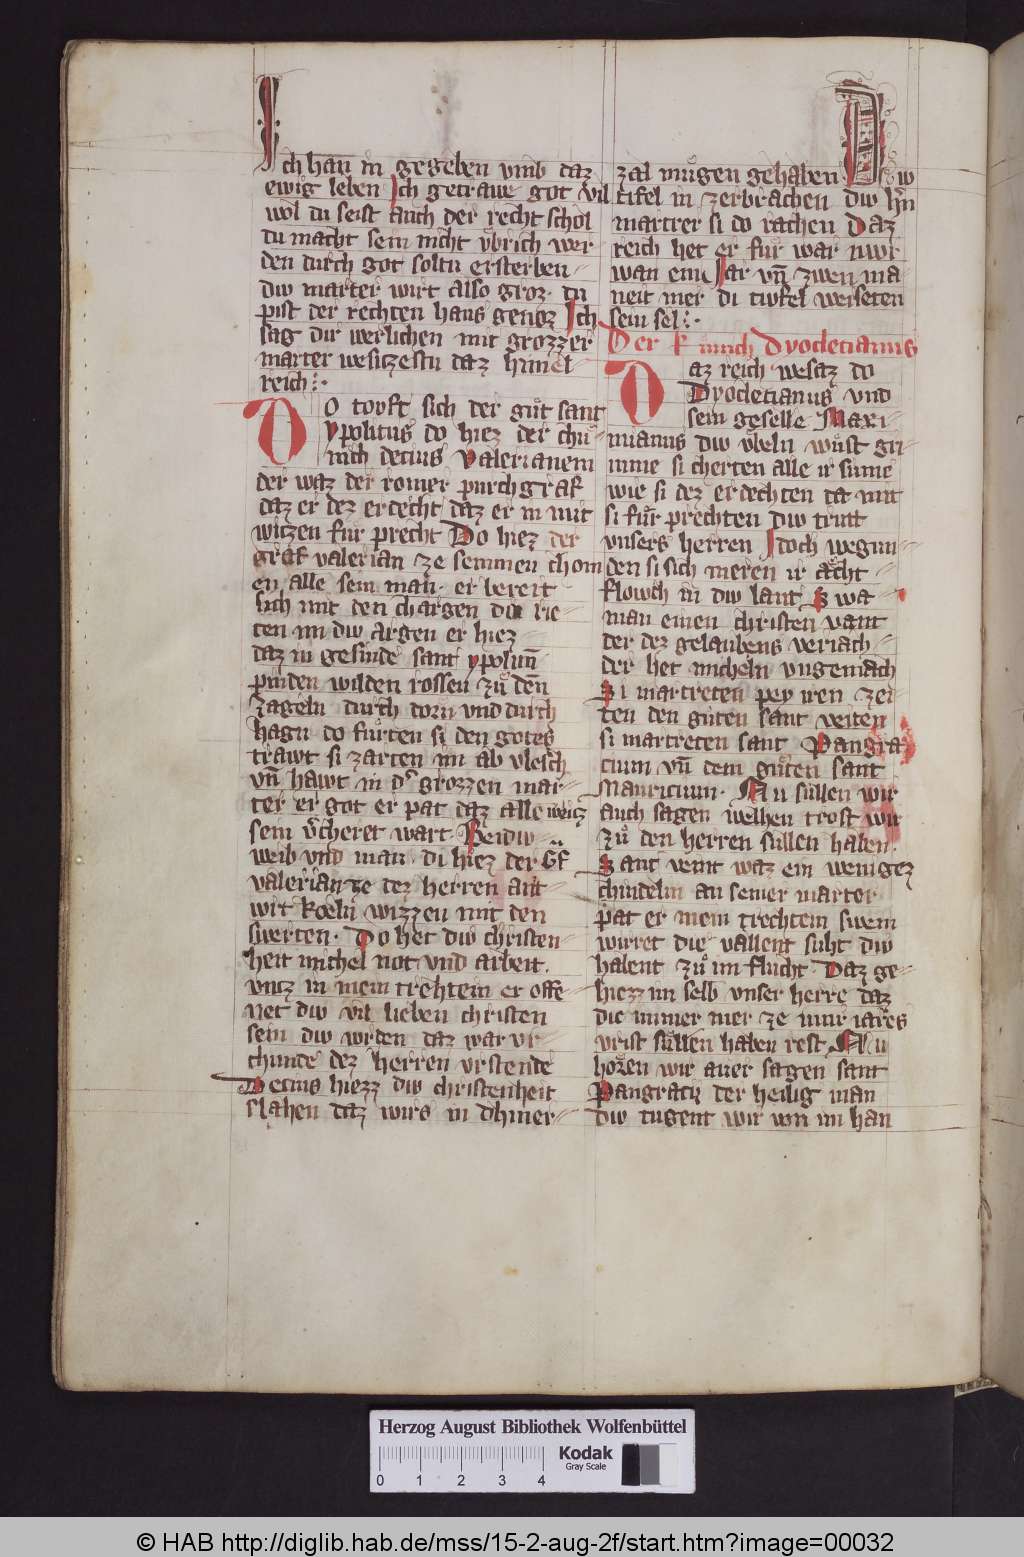 Ich han in gegeben vmb daz
ewig leben Ich getrawe got vil
wol du seist auch der recht schol
du macht sein nicht vbrich wer-
den durch got soltu ersterben
diw marter wirt also groz du
pist der rechten haus genoz Ich
sag dir werlichen mit grozzer
marter wesitzestu daz himel-
reich
Do tovft sich der gůt sant
ypolitus do hiez der chů-
nich decius valerianem
der waz der romer purchgraf
daz er dez erdecht daz er in mit
witzen fur precht Do hiez der
graf valerian ze semmen chom
en alle sein man er bereit
sich mit den chargen die rie-
ten im diw argen er hiez
daz in gesinde sant ypolitū
pinden wilden rossen zů den
zageln durch dorn vnd durch
hagn do fůrten si den gotes
trawt si zarten im ab vleisch
vn̄ hawt in d' grozzen mar-
ter er got er pat daz alle weitz
sein v̊cheret wart Peidiw
weib vnd man di hiez der Gf
valeriante dez herren ant-
wirt koeln wizzen mit den
swerten Do het diw christen-
heit michel not vnd arbeit
vntz in mein trehtein er offe
net diw vil lieben christen
sein diw wrden daz war vr-
chunde dez herren vrstende
Decius hiezz diw christenheit
slahen daz wirs in dhiner-
zal můgen gehaben Diw
tifel in zerbrachen diw hr̄n
martrer si do rachen Daz
reich het er fůr war nwr
wan ein Iar vn̄ zwen ma-
neit mer di tiwfel weiseten
sein sel
Der kunich Dyocletianus
Daz reich wesaz do
Dyocletianus vnd
sein geselle Maxi-
mianus diw vbeln wůst gri-
mme si cherten alle ir sinne
wie si dez erdechten da mit
si fůr prechten diw trutt
vnsers herren Idoch wegun-
den si sich meren ir ächt
flowch in diw lant Swa
man einen christen vant
der dez gelaubens veriach
der het micheln vngemach
Si martreten pey iren zei-
ten den guten sant veiten
si martreten sant Pangra-
cium vn̄ dem gůten sant
Mauricium Nu sullen wir
auch sagen welhen trost wir
zů den herren sullen haben
Sant veit waz ein weinigez
chindelin an seiner marter
pat er mein trechtein swem
wirret die vallent suht diw
habent zů im flucht Daz ge-
hiezz im selb vnser herre daz
die immer mer ze nivr iares
vrist sůllen haben rest Nu
hoͤren wir aver sagen sant
Pangratz der heilig man
diw tugent wir von im han
Herzog August Bibliothek Wolfenbüttel
0 1 2 3 4
Kodak
Gray Scale
© HAB http://diglib.hab.de/mss/15-2-aug-2f/start.htm?image=00032